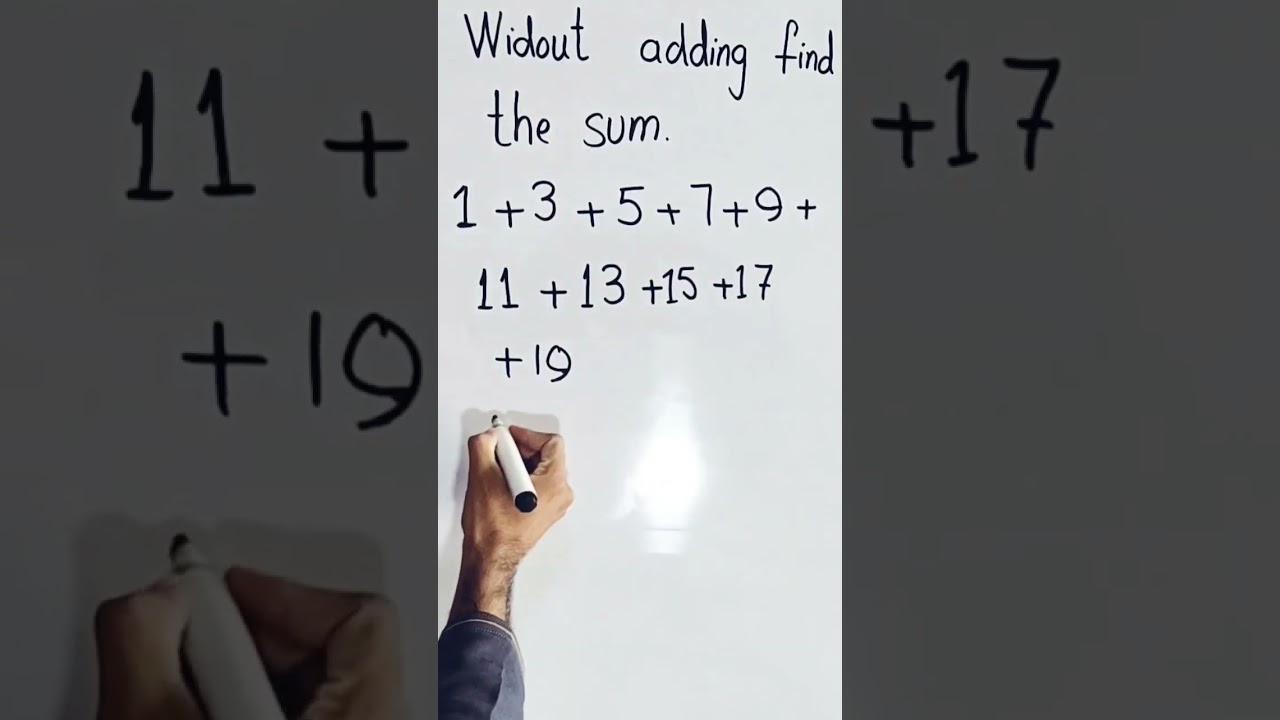 Widout adding find
the sum.
1 + 3 + 5 + 7 + 9 +
11 + 13 + 15 + 17
+ 19